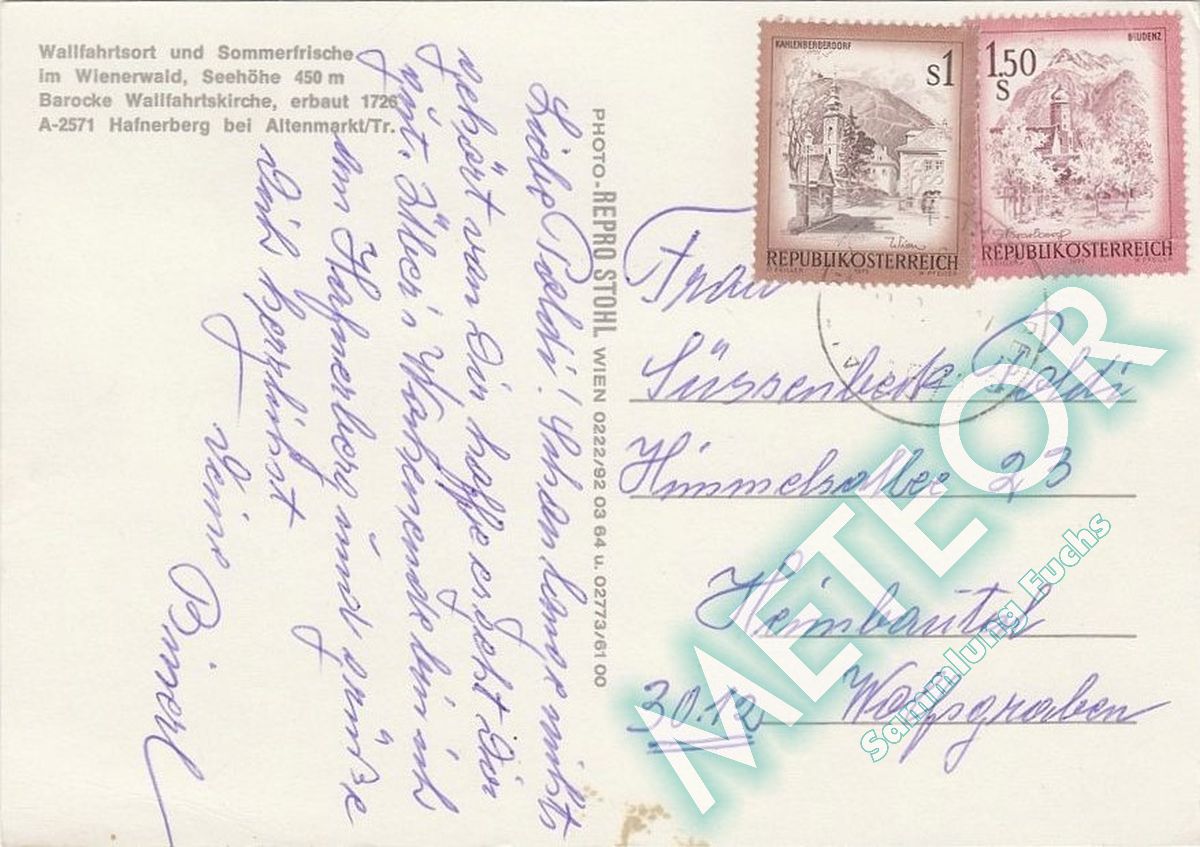 Wallfahrtsort und Sommerfrische
im Wienerwald, Seehöhe 450 m
Barocke Wallfahrtskirche, erbaut 1726
A-2571 Hafnerberg bei Altenmarkt/Tr.
Liebe Poldi! Schon lange nichts
gehört von Dir hoffe es geht Dir
gut. Übers Wochenende bin ich
am Hafnerberg und grüße
Dich herzlichst
Deine
PHOTO-REPRO STOHL WIEN 0222/92 03 64 u. 02773/61 00
KAHLENBERGERDORF
S1
Wien
REPUBLIK ÖSTERREICH
BLUDENZ
1.50
S
Vorarlberg
REPUBLIK ÖSTERREICH
Frau
Süssenbeck Poldi
Himmelsallee 23
Heimbautal
30.12 Wolfsgraben
METEOR
Sammlung Fuchs